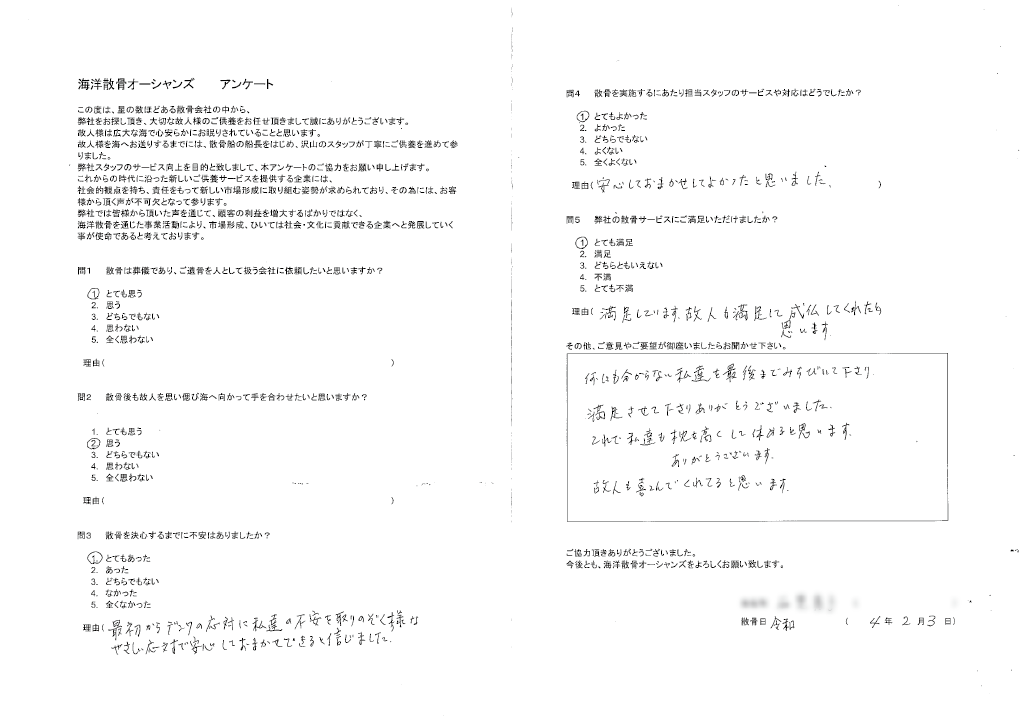 海洋散骨オーシャンズ　　アンケート
この度は、星の数ほどある散骨会社の中から、
弊社をお探し頂き、大切な故人様のご供養をお任せ頂きまして誠にありがとうございます。
故人様は広大な海で心安らかにお眠りされていることと思います。
故人様を海へお送りするまでには、散骨船の船長をはじめ、沢山のスタッフが丁寧にご供養を進めて参
りました。
弊社スタッフのサービス向上を目的と致しまして、本アンケートのご協力をお願い申し上げます。
これからの時代に沿った新しいご供養サービスを提供する企業には、
社会的観点を持ち、責任をもって新しい市場形成に取り組む姿勢が求められており、その為には、お客
様から頂く声が不可欠となって参ります。
弊社では皆様から頂いた声を通じて、顧客の利益を増大するばかりではなく、
海洋散骨を通じた事業活動により、市場形成、ひいては社会・文化に貢献できる企業へと発展していく
事が使命であると考えております。
問1　散骨は葬儀であり、ご遺骨を人として扱う会社に依頼したいと思いますか？
1. とても思う
2. 思う
3. どちらでもない
4. 思わない
5. 全く思わない
理由(　　)
問2　散骨後も故人を思い偲び海へ向かって手を合わせたいと思いますか？
1. とても思う
2. 思う
3. どちらでもない
4. 思わない
5. 全く思わない
理由(　　)
問3　散骨を決心するまでに不安はありましたか？
1. とてもあった
2. あった
3. どちらでもない
4. なかった
5. 全くなかった
理由( 最初からデンワの応対に私達の不安を取りのぞく様な
やさしい応対で安心しておまかせできると信じました。
問4　散骨を実施するにあたり担当スタッフのサービスや対応はどうでしたか？
1. とてもよかった
2. よかった
3. どちらでもない
4. よくない
5. 全くよくない
理由( 安心しておまかせしてよかったと思いました。 )
問5　弊社の散骨サービスにご満足いただけましたか？
1. とても満足
2. 満足
3. どちらともいえない
4. 不満
5. とても不満
理由( 満足しています。故人も満足して成仏してくれたら
思います
その他、ご意見やご要望が御座いましたらお聞かせ下さい。
何にも分からない私達を最後までみちびいて下さり
満足させて下さりありがとうございました。
これで私達も枕を高くして休めると思います。
ありがとうございます。
故人も喜こんでくれてると思います。
ご協力頂きありがとうございました。
今後とも、海洋散骨オーシャンズをよろしくお願い致します。
散骨日 令和　( 4 年 2 月 3 日)